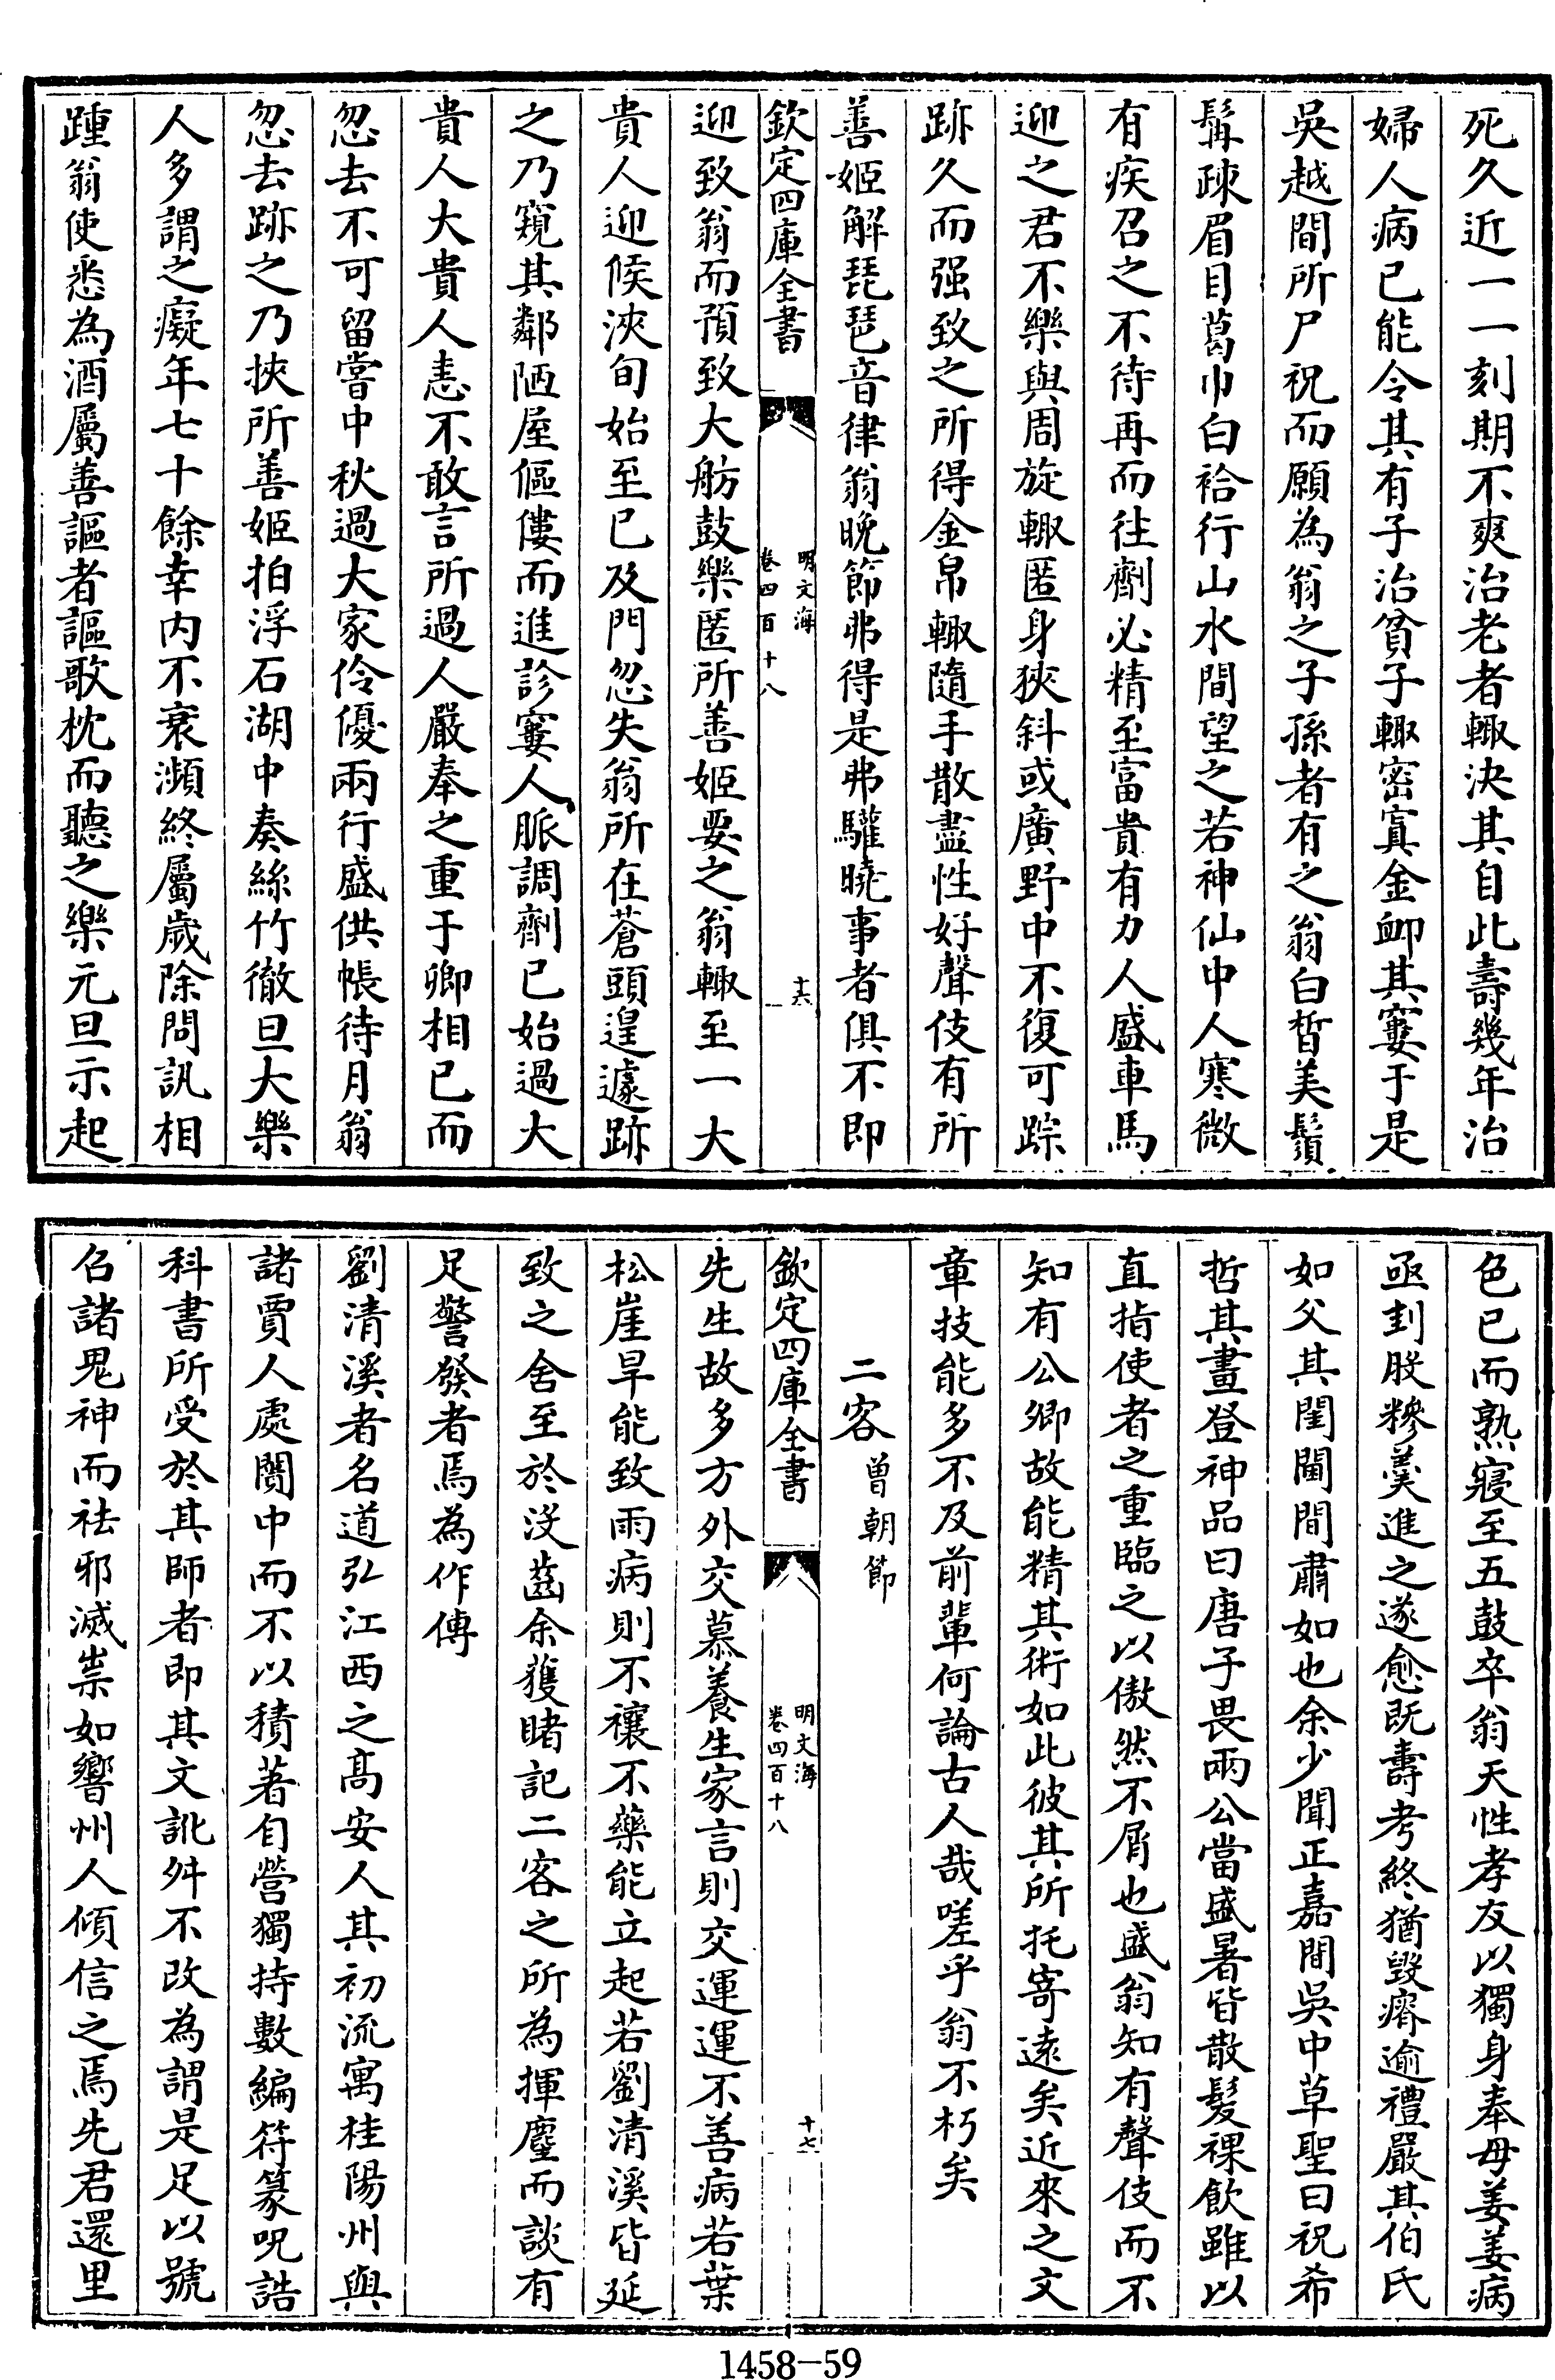 死久近一一刻期不爽治老者輙決其自此壽幾年治
婦人病已能令其有子治貧子輙密寘金卹其窶于是
吳越間所尸祝而願為翁之子孫者有之翁白晳美鬚
髯疎眉目葛巾白袷行山水間望之若神仙中人寒微
有疾召之不待再而往劑必精至富貴有力人盛車馬
迎之君不樂與周旋輙匿身狹斜或廣野中不復可踪
跡久而强致之所得金帛輙隨手散盡性好聲伎有所
善姬解琵琶音律翁晚節弗得是弗驩曉事者俱不即
欽定四庫全書
明文海
卷四百十八
十六
迎致翁而預致大舫鼓樂匿所善姬要之翁輙至一大
貴人迎候浹旬始至已及門忽失翁所在蒼頭遑遽跡
之乃窺其鄰陋屋傴僂而進診窶人脈調劑已始過大
貴人大貴人恚不敢言所過人嚴奉之重于卿相已而
忽去不可留嘗中秋過大家伶優兩行盛供帳待月翁
忽去跡之乃挾所善姬拍浮石湖中奏絲竹徹旦大樂
人多謂之癡年七十餘幸内不衰瀕終屬歲除問訊相
踵翁使悉為酒屬善謳者謳歌枕而聽之樂元旦示起
色已而熟寢至五鼓卒翁天性孝友以獨身奉母姜姜病
亟刲股糝羹進之遂愈既壽考終猶毁瘠逾禮嚴其伯氏
如父其閨閫間肅如也余少聞正嘉間吳中草聖曰祝希
哲其畫登神品曰唐子畏兩公當盛暑皆散髮裸飲雖以
直指使者之重臨之以傲然不屑也盛翁知有聲伎而不
知有公卿故能精其術如此彼其所托寄遠矣近來之文
章技能多不及前輩何論古人哉嗟乎翁不朽矣
二客曽朝節
欽定四庫全書
明文海
卷四百十八
十七
先生故多方外交慕養生家言則交運運不善病若葉
松崖旱能致雨病則不禳不藥能立起若劉清溪皆延
致之舍至於沒齒余獲睹記二客之所為揮麈而談有
足警發者焉為作傳
劉清溪者名道弘江西之髙安人其初流寓桂陽州與
諸賈人處闤中而不以積著自營獨持數編符篆呪誥
科書所受於其師者即其文訛舛不改為謂是足以號
召諸鬼神而祛邪滅祟如響州人傾信之焉先君還里
1458-59